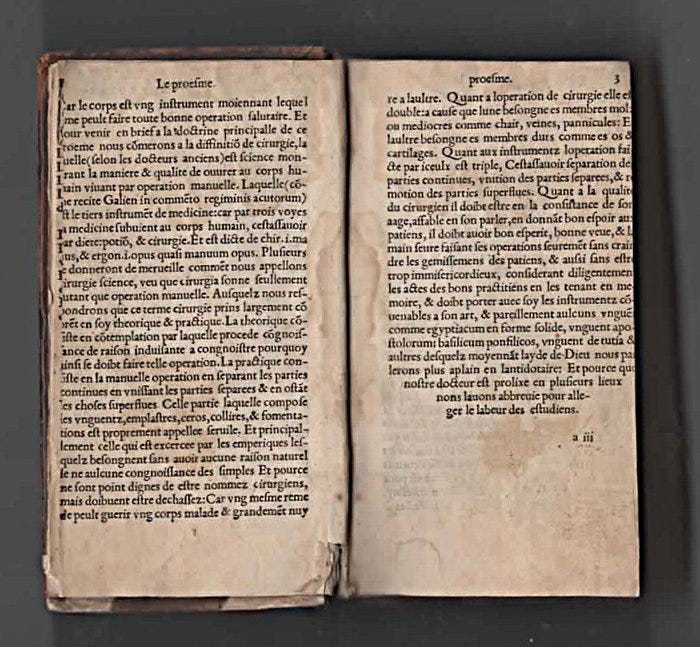 Le proesme.
ar le corps est vng instrument moiennant lequel
me peult faire toute bonne operation salutaire. Et
our venir en brief a la doctrine principale de ce
roeme nous cōmerons a la diffinitiō de cirurgie, la
uelle (selon les docteurs anciens) est science mon-
rant la maniere & qualite de ouurer au corps hu-
main viuant par operation manuelle. Laquelle (cō-
e recite Galien in commēto regiminis acutorum)
st le tiers instrumēt de medicine: car par trois voyes
a medicine subuient au corps humain, cestassauoir
ar diete: potiō, & cirurgie. Et est dicte de chir. i. ma
us, & ergon. i. opus quasi manuum opus. Plusieurs
e donneront de merueille commēt nous appellons
irurgie science, veu que cirurgia sonne seullement
utant que operation manuelle. Ausquelz nous res-
ondrons que ce terme cirurgie prins largement cō
rēt en soy theorique & practique. La theorique cō-
iste en cōtemplation par laquelle procede cōgnois-
ance de raison induisante a congnoistre pourquoy
insi se doibt faire telle operation. La practique con-
iste en la manuelle operation en separant les parties
continues en vnissant les parties separees & en ostāt
les choses superflues Celle partie laquelle compose
les vnguentz, emplastres, ceros, collires, & fomenta-
tions est proprement appellee seruile. Et principal-
lement celle qui est excercee par les emperiques les-
quelz besongnent sans auoir aucune raison naturel
le ne aulcune congnoissance des simples Et pource
ne sont point dignes de estre nommez cirurgiens,
mais doibuent estre dechassez: Car vng mesme reme
de peult guerir vng corps malade & grandemēt nuy
proesme. 3
re a laultre. Quant a loperation de cirurgie elle es
double: a cause que lune besongne es membres mol:
ou mediocres comme chair, veines, pannicules: E
laultre besongne es membres durs comme es os &
cartilages. Quant aux instrumentz loperation fai
cte par iceulx est triple, Cestassauoir separation de
parties continues, vnition des parties separees, & r
motion des parties superflues. Quant a la qualit
du cirurgien il doibt estre en la consistance de son
aage, affable en son parler, en donnāt bon espoir au
patiens, il doibt auoir bon esperit, bonne veue, & l
main seure faisant ses operations seuremēt sans crain
dre les gemissemens des patiens, & aussi sans estre
trop immisericordieux, considerant diligentemen
les actes des bons practitiens en les tenant en me-
moire, & doibt porter auec soy les instrumentz cō-
uenables a son art, & pareillement aulcuns vngue
comme egyptiacum en forme solide, vnguent apo-
stolorum: basilicum ponfilicos, vnguent de tutia &
aultres desquelz moyennāt layde de Dieu nous pa
lerons plus aplain en lantidotaire: Et pource que
nostre docteur est prolixe en plusieurs lieux
nons lauons abbreuie pour alle-
ger le labeur des estudiens.
a iii